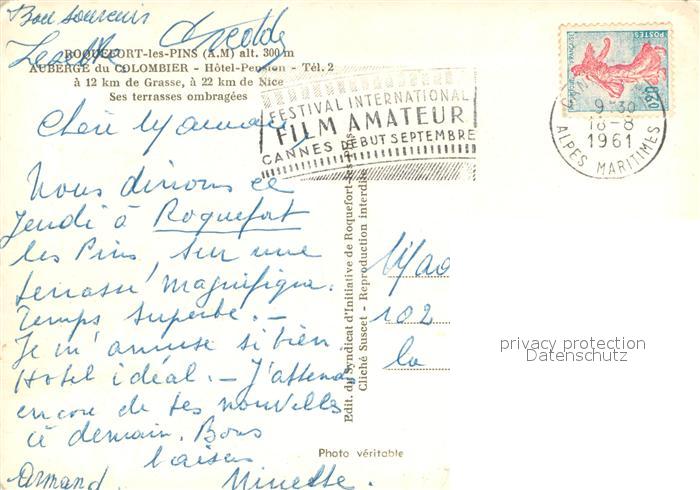 Bon souvenir
ROQUEFORT-les-PINS (A.M) alt. 300 m
AUBERGE du COLOMBIER - Hôtel-Pension - Tél. 2
à 12 km de Grasse, à 22 km de Nice
Ses terrasses ombragées
FESTIVAL INTERNATIONAL
FILM AMATEUR
CANNES DEBUT SEPTEMBRE
POSTES
0,20
9-30
18-8
1961
ALPES MARITIMES
Chère Maman,
Nous dinons ce
jeudi à Roquefort
les Pins, sur une
terrasse magnifique.
Temps superbe. -
Je m'amuse si bien.
Hotel idéal. - J'attends
encore de tes nouvelles
à demain. Bons
baisers
Armand. Minette.
Edit. du Syndicat d'Initiative de Roquefort-les-Pins
Cliché Suscet - Reproduction interdite
102
la
privacy protection
Datenschutz
Photo véritable